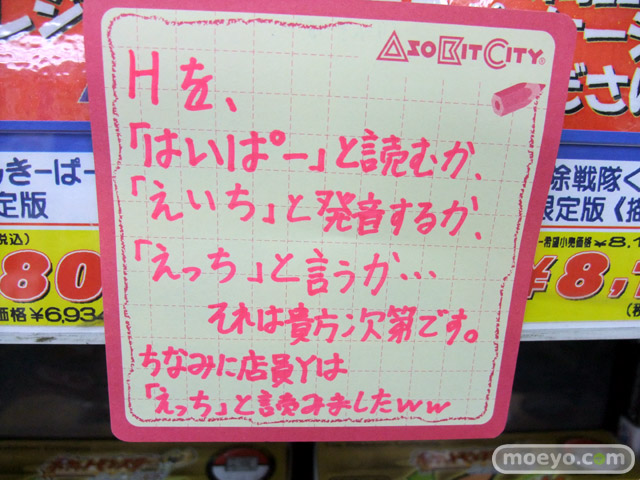 ASOBIT CITY
Hを、
「はいぱー」と読むか、
「えいち」と発音するか、
「えっち」と言うか…
それは貴方次第です。
ちなみに店員Yは
「えっち」と読みましたww
きーぱー
定版
税込)
80
価格 ¥6,93
除戦隊く
限定版〈描
希望小売価格 ¥8,1
¥8,
moeyo.com